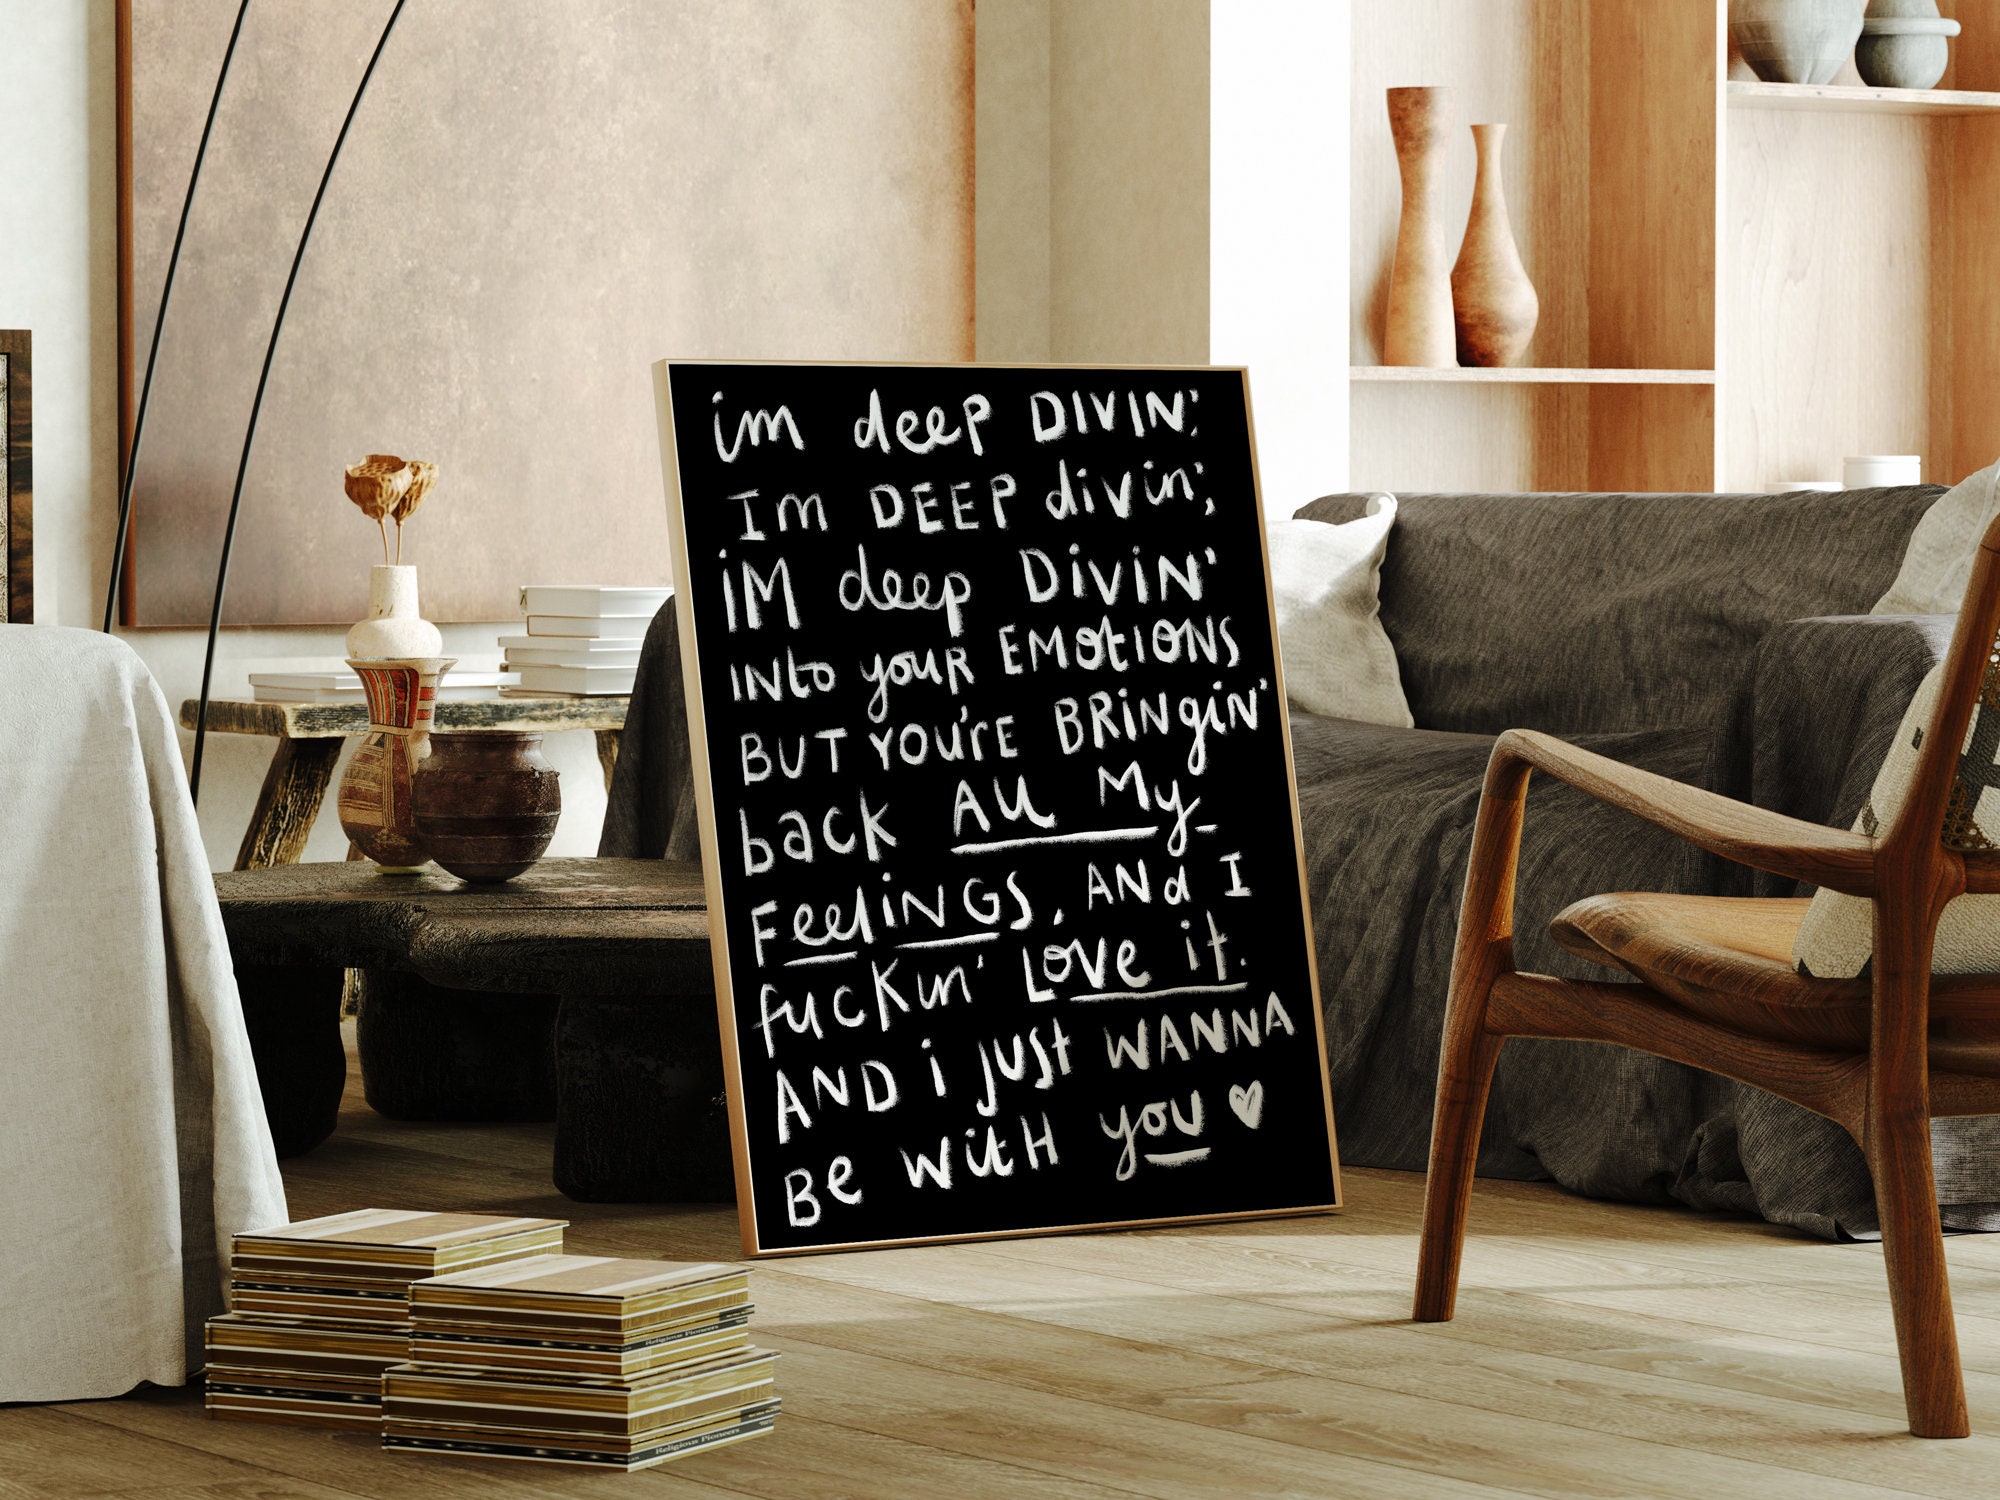 im deep DIVIN',
Im DEEP divin',
iM deep DiViN'
INto youR EMOtIONS
BUT YOU'rE BRiNgiN'
back All My
FeeliNGS, ANd I
fuckin' Love it.
AND i just WANNA
Be with you ♥
Religious Pioneers
Religious Pioneers